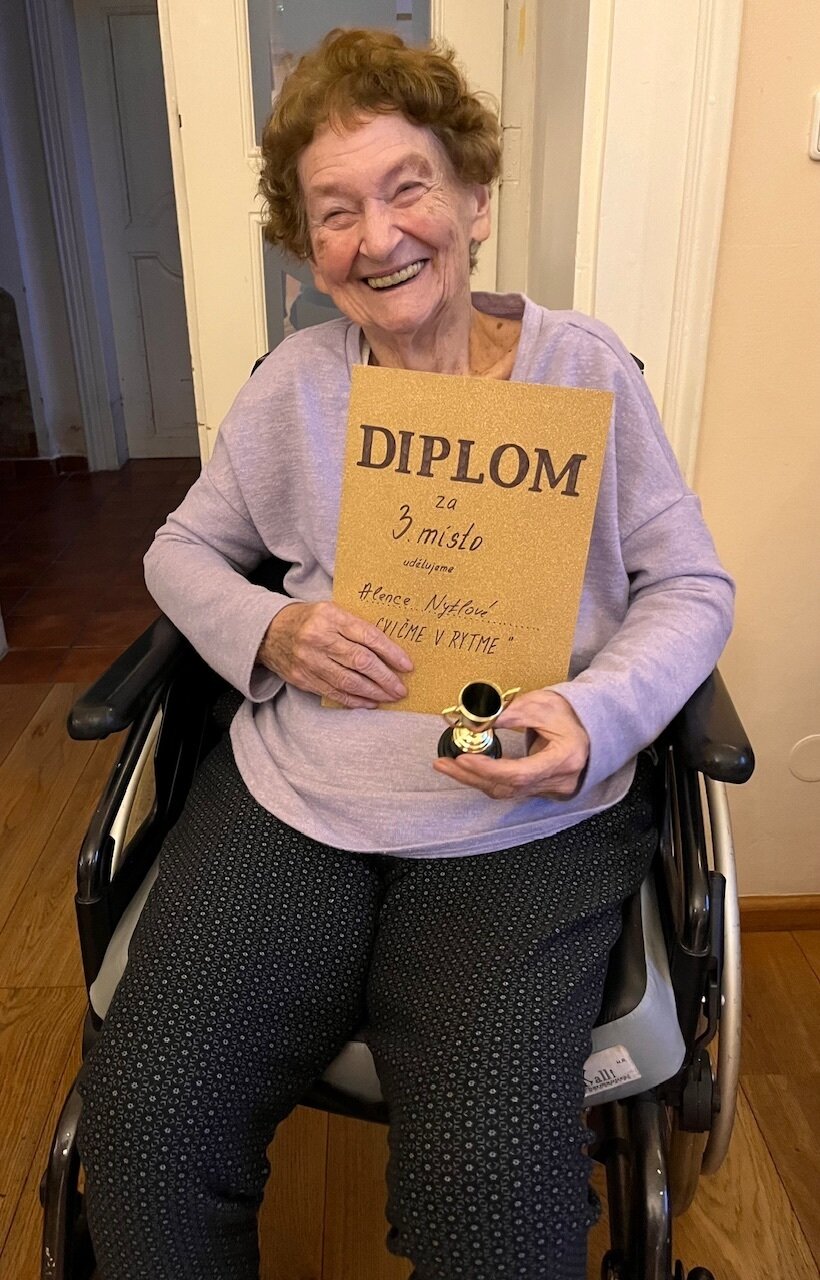 DIPLOM
za
3. místo
udělujeme
Alence Nyklové
"CVIČME V RYTME"